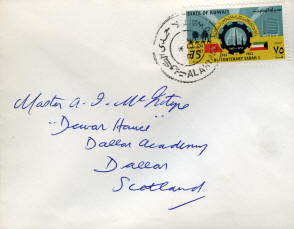 STATE OF KUWAIT
75
٧٥
BICENTENARY SABAH I
Master A. I. McIntyre
"Dewar House"
Dollar Academy
Dollar
Scotland